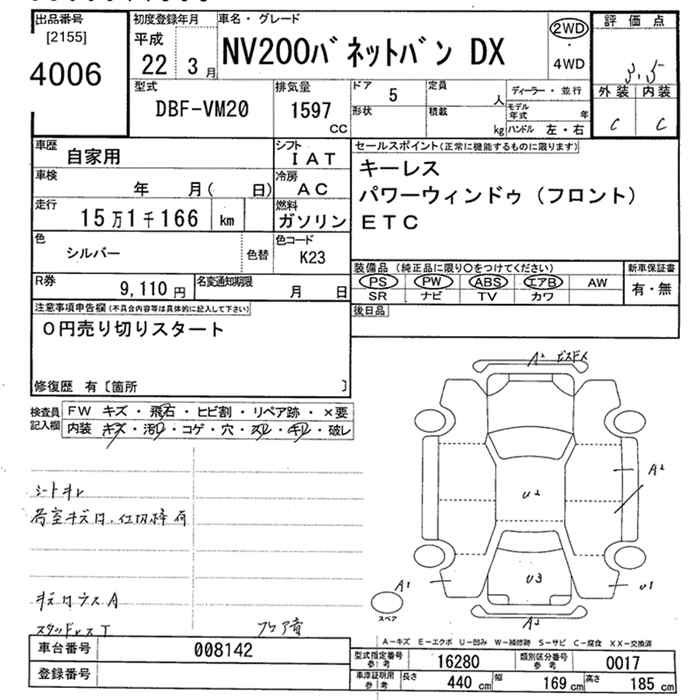 出品番号
[2155]
4006
初度登録年月
平成
22 3月
車名・グレード
NV200バネットバン DX
2WD
・
4WD
評価点
3.5
外装 内装
C C
型式
DBF-VM20
排気量
1597
CC
ドア 5
形状
定員 人
積載 kg
ディーラー・並行
モデル年式 年
ハンドル 左・右
車歴 自家用
シフト IAT
車検 年 月( 日)
冷房 AC
走行 15万1千166 km
燃料 ガソリン
色 シルバー
色替
色コード K23
R券 9,110円
名変通知期限 月 日
セールスポイント(正常に機能するものに限ります)
キーレス
パワーウィンドゥ(フロント)
ETC
装備品(純正品に限り○をつけてください)
PS PW ABS エアB AW
SR ナビ TV カワ
新車保証書
有・無
後日品
注意事項申告欄(不具合内容等は具体的に記入して下さい)
0円売り切りスタート
修復歴 有〔箇所 〕
検査員記入欄
FW キズ・飛石・ヒビ割・リペア跡・×要
内装 キズ・汚レ・コゲ・穴・スレ・キレ・破レ
シートキレ
荷室キズ凹、仕切枠有
キズ凹 A
A2
U2
A2
U3
U1
A1
スペア
A2
A-キズ E-エクボ U-凹み W-補修跡 S-サビ C-腐食 XX-交換済
車台番号 008142
登録番号
型式指定番号 参考 16280
類別区分番号 参考 0017
車庫証明用 参考
長さ 440 cm 幅 169 cm 高さ 185 cm